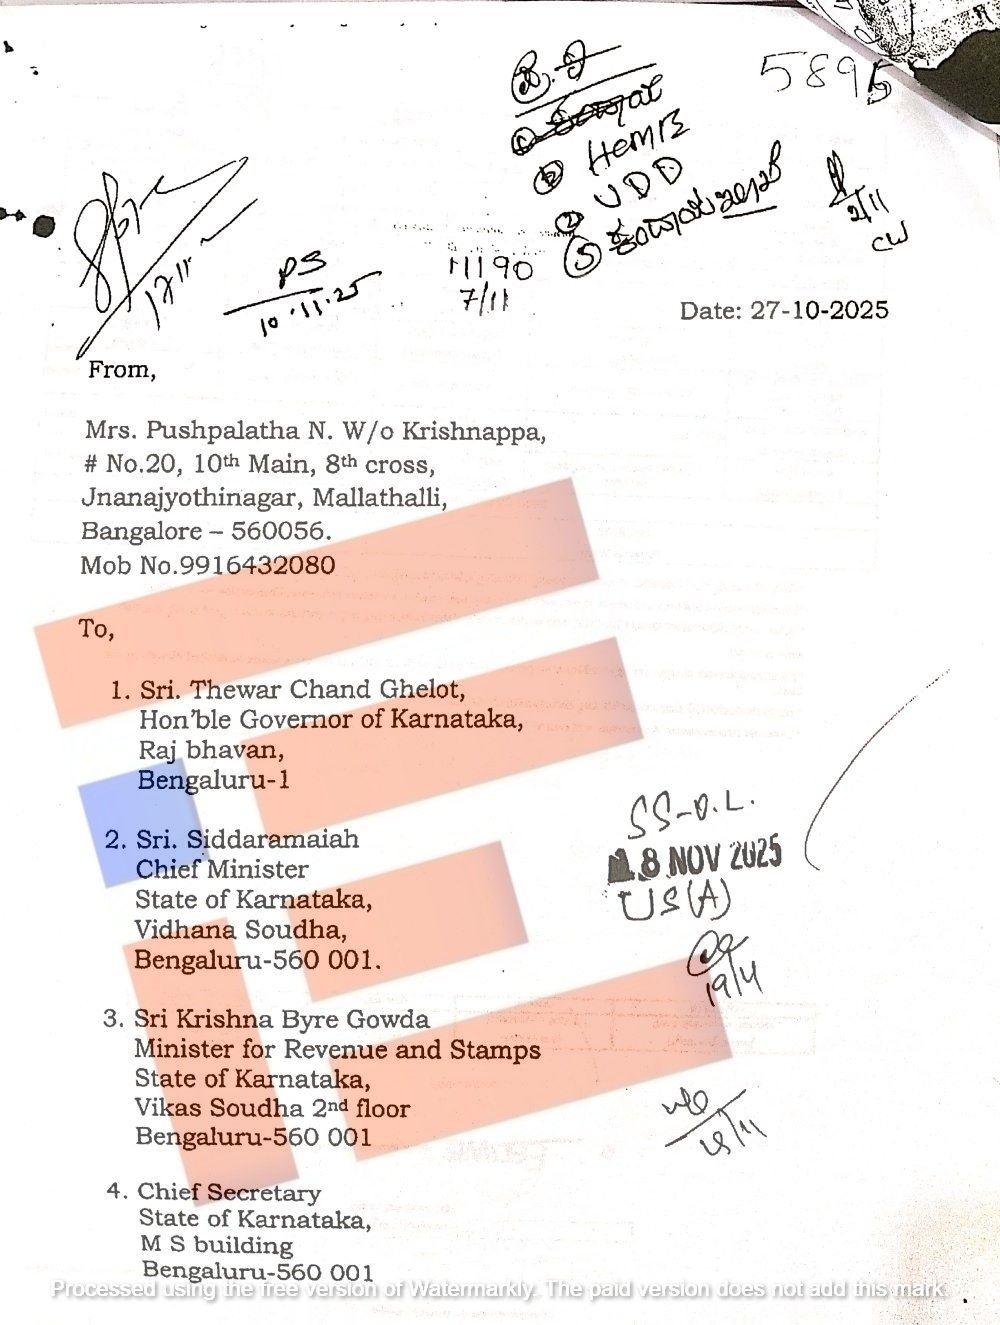 5895
HemB
UDD
2/11
CW
PS
10.11.25
11190
7/11
Date: 27-10-2025
From,
Mrs. Pushpalatha N. W/o Krishnappa,
# No.20, 10th Main, 8th cross,
Jnanajyothinagar, Mallathalli,
Bangalore – 560056.
Mob No.9916432080
To,
1. Sri. Thewar Chand Ghelot,
Hon'ble Governor of Karnataka,
Raj bhavan,
Bengaluru-1
2. Sri. Siddaramaiah
Chief Minister
State of Karnataka,
Vidhana Soudha,
Bengaluru-560 001.
SS-D.L.
18 NOV 2025
US(A)
19/11
3. Sri Krishna Byre Gowda
Minister for Revenue and Stamps
State of Karnataka,
Vikas Soudha 2nd floor
Bengaluru-560 001
4. Chief Secretary
State of Karnataka,
M S building
Bengaluru-560 001
Processed using the free version of Watermarkly. The paid version does not add this mark.